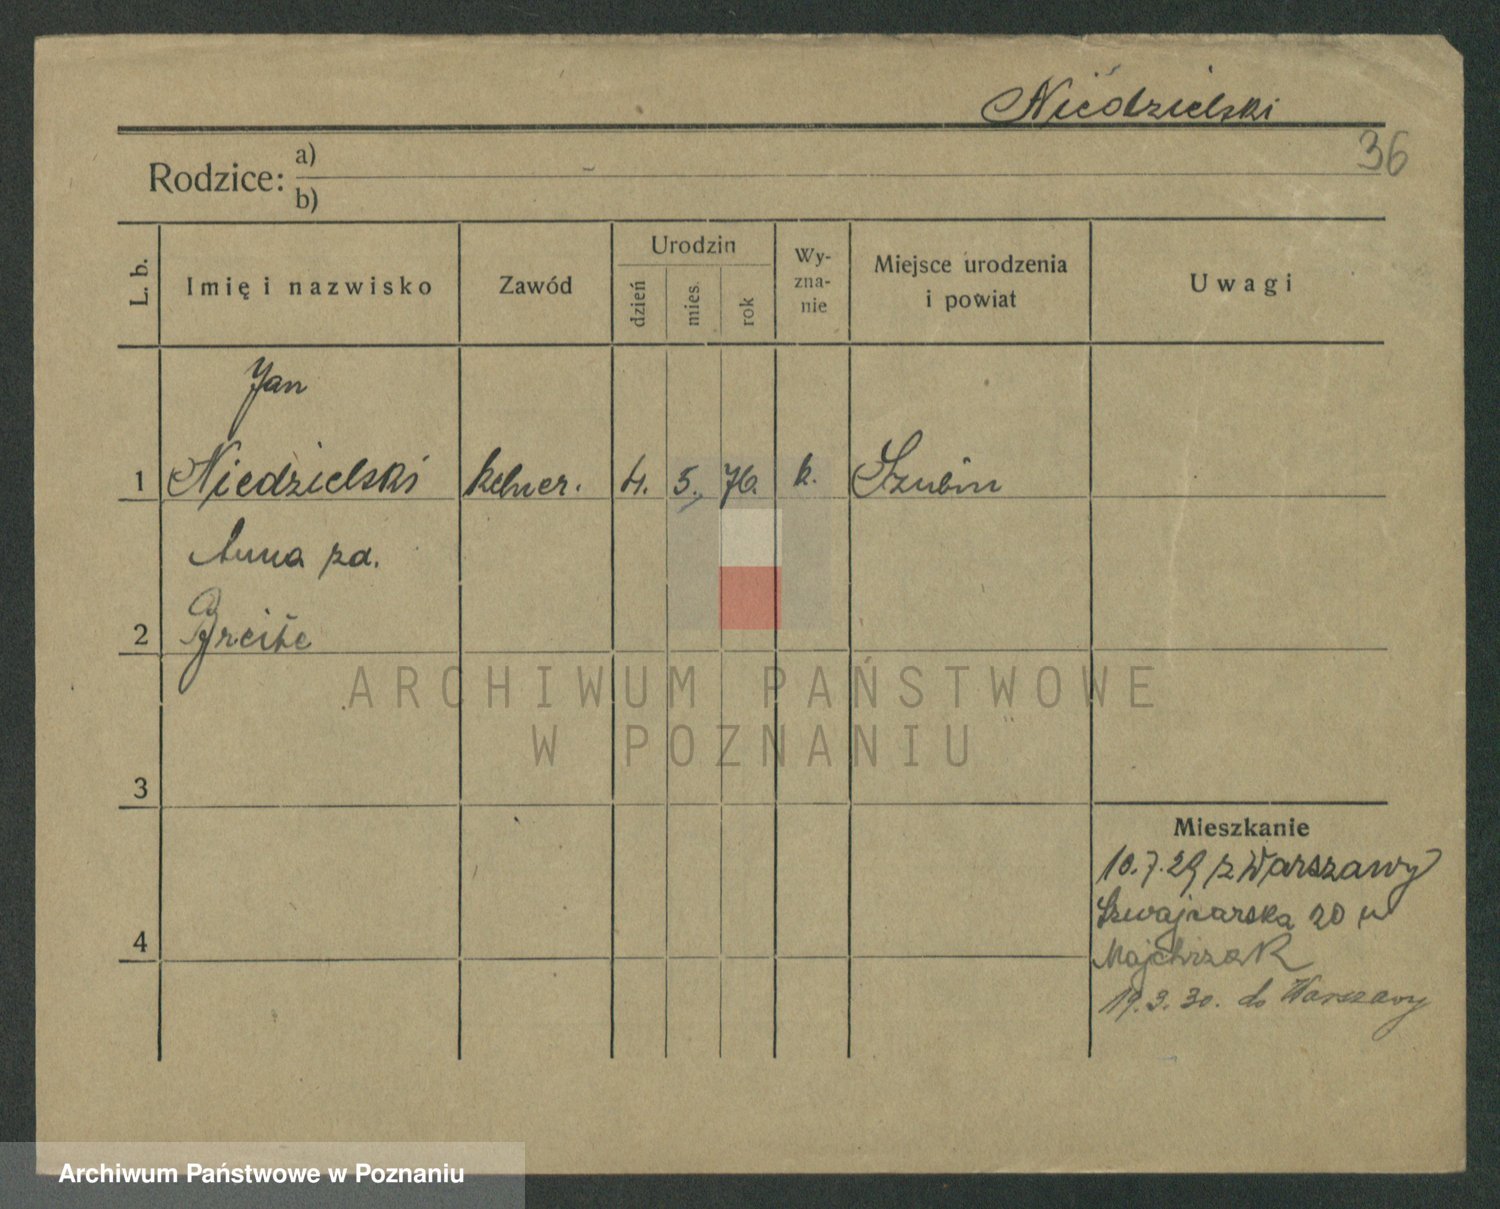 Niedzielski
36
Rodzice: a)
b)
L. b.
Imię i nazwisko
Zawód
Urodzin
dzień
mies.
rok
Wy-
zna-
nie
Miejsce urodzenia
i powiat
Uwagi
Jan
1 Niedzielski kelner. 4. 5. 76. k. Szubin
Anna za.
2
3
Mieszkanie
10.7.29 z Warszawy
Szwajcarska 20 u
Majchrzak
4
19.3.30. do Warszawy
ARCHIWUM PAŃSTWOWE
W POZNANIU
Archiwum Państwowe w Poznaniu